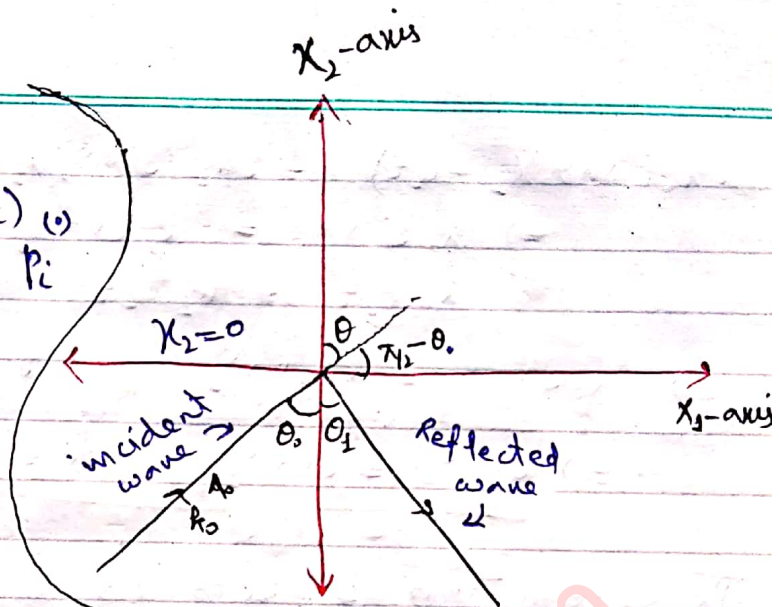 X₂-axis
) (•)
pᵢ
X₂=0
θ
π/2-θ₀
X₁-axis
incident
wave
θ₀ θ₁
Reflected
wave
A₀
k₀